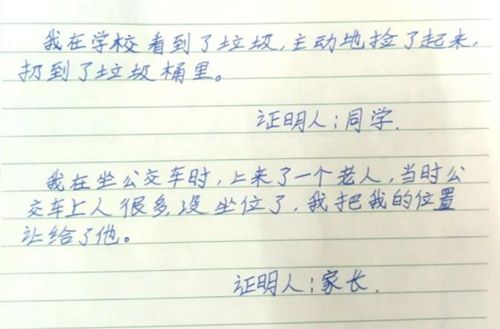 我在学校看到了垃圾,主动地捡了起来,
扔到了垃圾桶里。
证明人:同学.
我在坐公交车时,上来了一个老人,当时公
交车上人很多没坐位了,我把我的位置
让给了他。
证明人:家长.